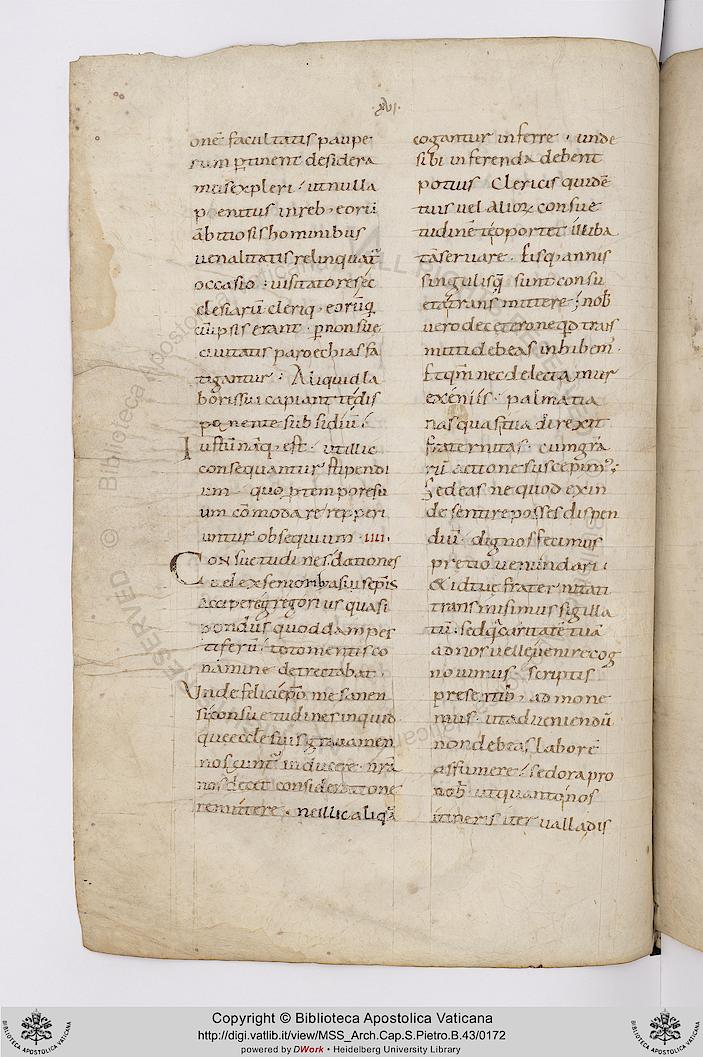 ·XVI·
onē facultatis paupe
rum ꝑtinent desidera
mus expleri · ut nulla
poenitus in reb; eorū
ābitiosis hominibus
uenalitatis relinquat̄
occasio · uisitatores ec
clesiarū cleriq; eorūq;
cū ipsis erant
ciuitatis paroechias fa
tigantur · Aliquid la
boris sui capiant te dis
ponente subsidiū ·
Iustū nāq; est · ut illic
consequantur stipendi
um quo ꝑ tempore su
um cōmodare repperi
untur obsequium · IIII ·
Consuetudines dationes
uel exsenioribus
accipere gregorius quasi
pondus quoddam pes
tiferū · toto mentis co
nāmine detrectabat ·
Unde felici ep̄o mesanen
si consuetudines inquid
que eccle suis grauamen
nos cunt inducere · nr̄a
nos decet consideratione
remittere · ne illic aliqā
cogantur inferre · unde
sibi inferenda debent
potius Clericis quidē
tuis uel alioꝝ consue
tudinē te oportet illiba
tā seruare · Eisq; annis
singulisq; sunt consu
eta transmittere ; nob̄
uero de cetero ne qd trans
mitti debeas inhibem̄ ·
Et qm̄ nec delectamur
exeniis · palmatia
nas quas tua direxit
fraternitas · cum gra
rū actione suscepim; ;
Sed eas ne quod exin
de sentire posses dispen
diū · dignos fecimus
pretio uenundari ·
& id tue fraternitati
transmisimus sigilla
tū · sed q̄ caritatē tuā
ad nos uelle uenire cog
nouimus scriptis
presentib; admone
mus · ut adueniendū
non debeas laborē
assumere · sed ora pro
nob̄ · ut quanto nos
itineris
RESERVED © Biblioteca Apostolica Vaticana
Copyright © Biblioteca Apostolica Vaticana
http://digi.vatlib.it/view/MSS_Arch.Cap.S.Pietro.B.43/0172
powered by DWork • Heidelberg University Library
BIBLIOTECA APOSTOLICA VATICANA
BIBLIOTECA APOSTOLICA VATICANA